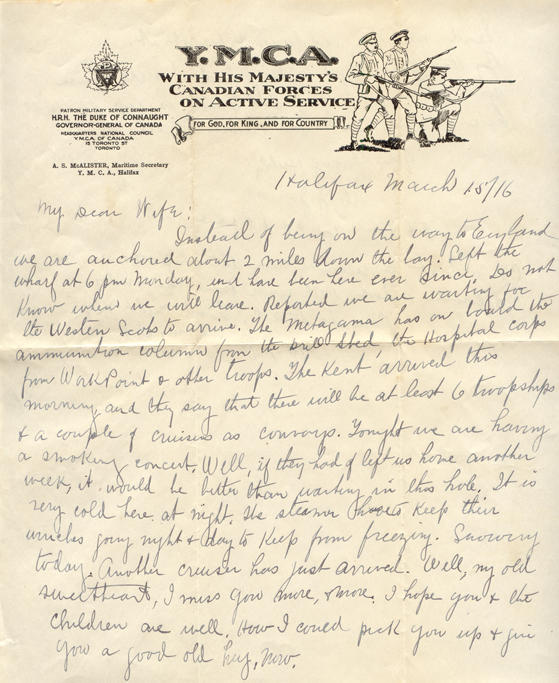 Y.M.C.A.
WITH HIS MAJESTY'S
CANADIAN FORCES
ON ACTIVE SERVICE
FOR GOD, FOR KING, AND FOR COUNTRY
PATRON MILITARY SERVICE DEPARTMENT
H.R.H. THE DUKE OF CONNAUGHT
GOVERNOR-GENERAL OF CANADA
HEADQUARTERS NATIONAL COUNCIL
Y.M.C.A. OF CANADA
15 TORONTO ST
TORONTO
A. S. McALISTER, Maritime Secretary
Y. M. C. A., Halifax
Halifax March 15/16
My Dear Wife:
Instead of being on the way to England
we are anchored about 2 miles down the bay. Left the
wharf at 6 pm Monday, and have been here ever since. Do not
know when we will leave. Reported we are waiting for
the Western Scots to arrive. The Metagama has on board the
ammunition column from the Drill Shed, the Hospital corps
from Work Point & other troops. The Kent arrived this
morning, and they say that there will be at least 6 troopships
& a couple of cruisers as convoys. Tonight we are having
a smoking concert. Well, if they had of left us home another
week, it would be better than waiting in this hole. It is
very cold here at night. The steamer have to keep their
winches going night & day to keep from freezing. Snowing
today. Another cruiser has just arrived. Well, my old
sweetheart, I miss you more, & more. I hope you & the
children are well. How I could pick you up & give
you a good old hug, now.